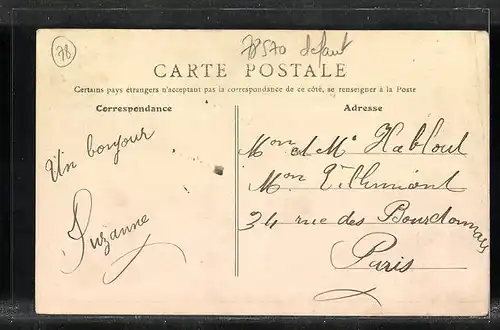 78
78570 defaut
CARTE POSTALE
Certains pays étrangers n'acceptant pas la correspondance de ce côté, se renseigner à la Poste
Correspondance
Adresse
Un bonjour
Suzanne
Mon et Me
Mon
34 rue des Bourdonnais
Paris